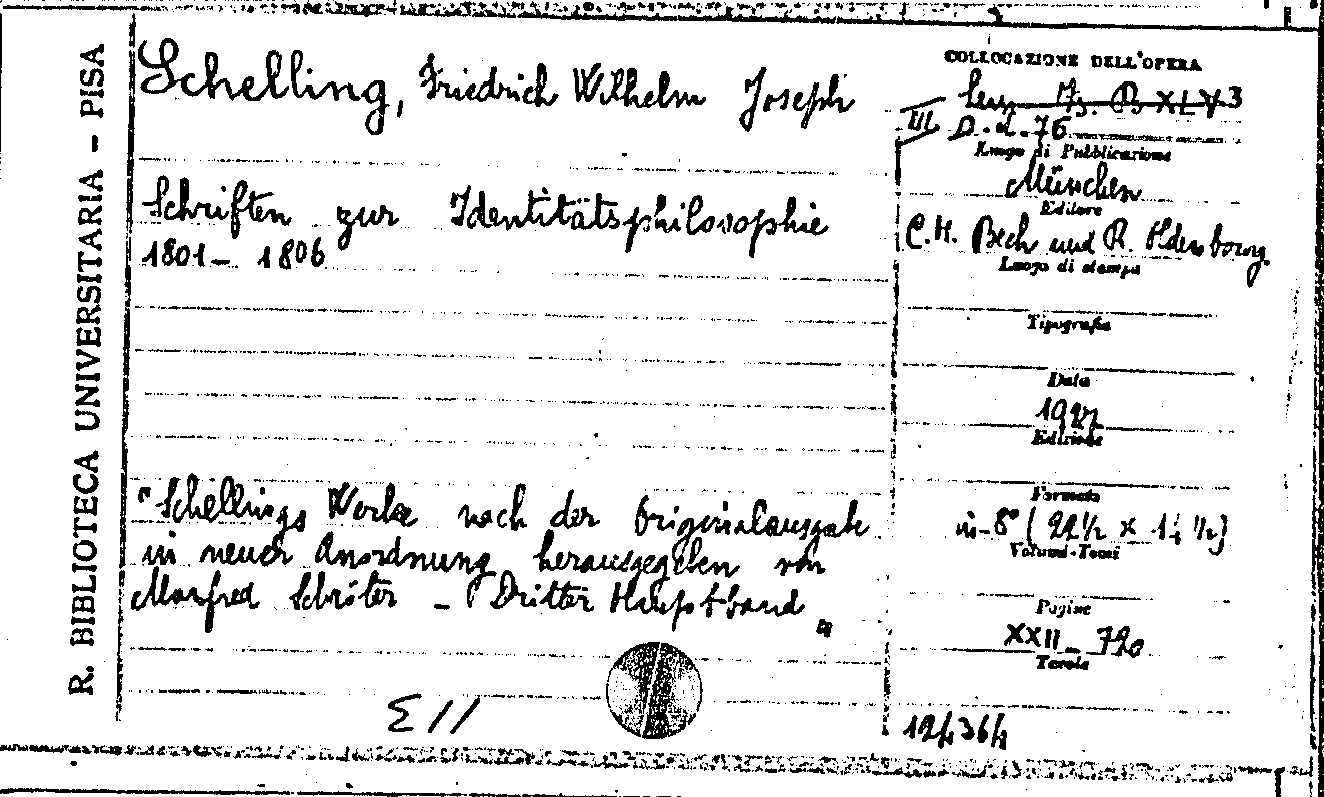 R. BIBLIOTECA UNIVERSITARIA – PISA
Schelling, Friedrich Wilhelm Joseph
Schriften zur Identitätsphilosophie
1801 – 1806
"Schellings Werke nach der Originalausgabe
in neuer Anordnung herausgegeben von
Manfred Schröter – Dritter Hauptband"
Σ //
COLLOCAZIONE DELL'OPERA
B XLV 3
III D. d. 76
Luogo di Pubblicazione
München
Editore
C. H. Beck und R. Oldenbourg
Luogo di stampa
Tipografia
Data
1927
Edizione
Formato
in-8° (22½ x 14 ½)
Volumi-Tomi
Pagine
XXII – 720
Tavole
124364